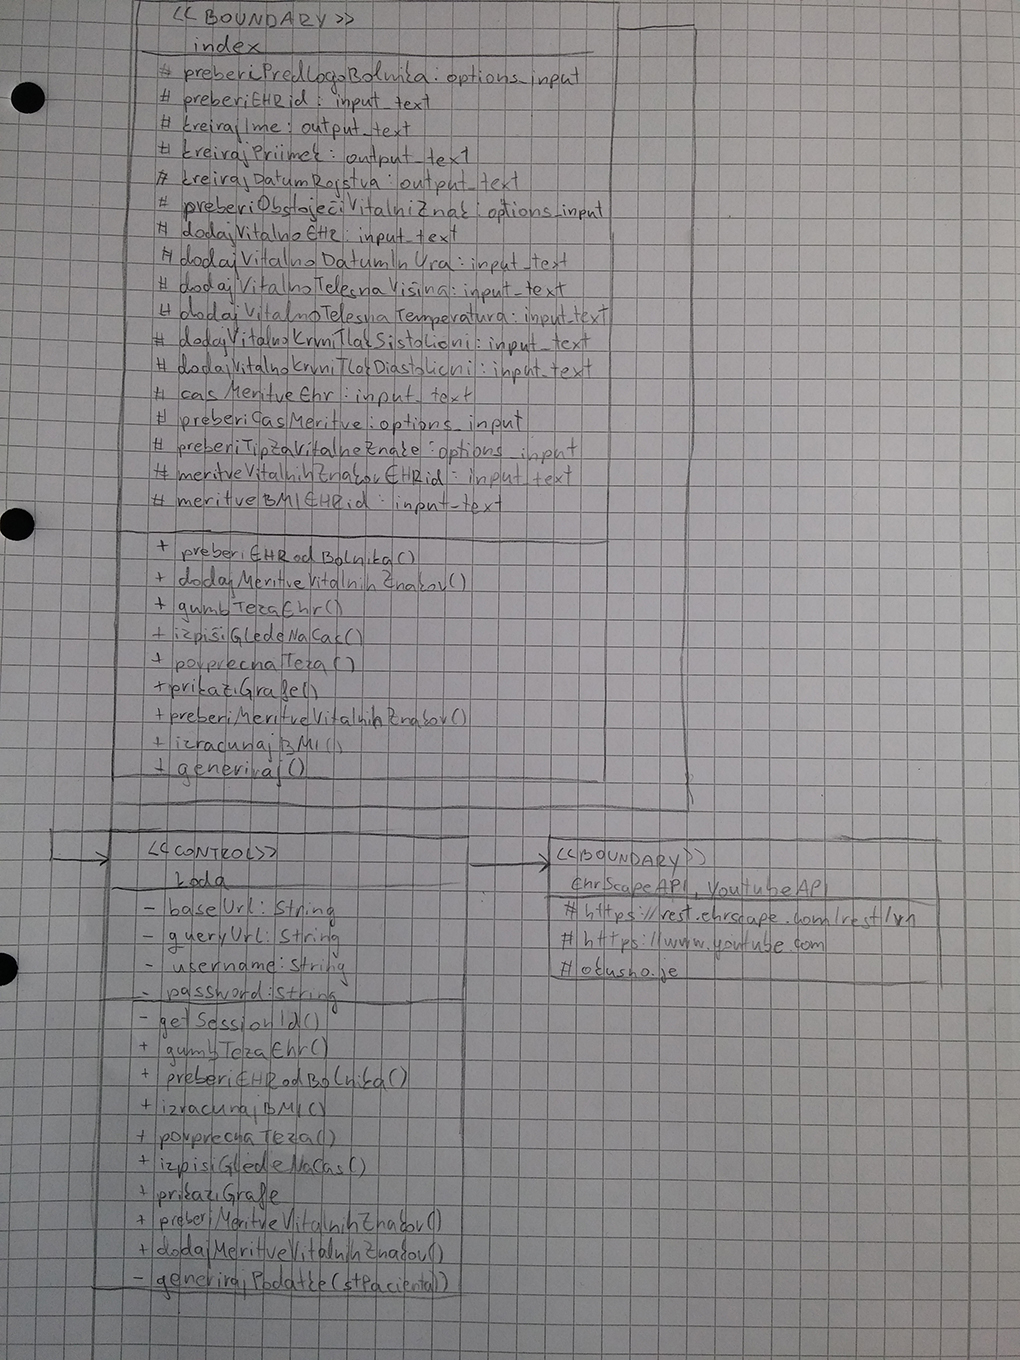 <<BOUNDARY>>
index
# preberiPredlogoBolnika: options_input
# preberiEHRid: input_text
# kreirajIme: output_text
# kreirajPriimek: output_text
# kreirajDatumRojstva: output_text
# preberiObstoječiVitalniZnak: options_input
# dodajVitalnoEHR: input_text
# dodajVitalnoDatumInUra: input_text
# dodajVitalnoTelesnaVišina: input_text
# dodajVitalnoTelesnaTemperatura: input_text
# dodajVitalnoKrvniTlakSistolicni: input_text
# dodajVitalnoKrvniTlakDiastolicni: input_text
# casMeritveEhr: input_text
# preberiCasMeritve: options_input
# preberiTipZaVitalneZnake: options_input
# meritveVitalnihZnakovEHRid: input_text
# meritveBMIEHRid: input_text
+ preberiEHRodBolnika()
+ dodajMeritveVitalnihZnakov()
+ gumbTezaEhr()
+ izpišiGledeNaCas()
+ povprecnaTeza()
+ prikaziGrafe()
+ preberiMeritveVitalnihZnakov()
+ izracunajBMI()
+ generiraj()
<<CONTROL>>
koda
- baseUrl: String
- queryUrl: String
- username: String
- password: String
- getSessionId()
+ gumbTezaEhr()
+ preberiEHRodBolnika()
+ izracunajBMI()
+ povprecnaTeza()
+ izpisiGledeNaCas()
+ prikaziGrafe
+ preberiMeritveVitalnihZnakov()
+ dodajMeritveVitalnihZnakov()
- generirajPodatke(stPacienta))
<<BOUNDARY>>
EhrScapeAPI, YoutubeAPI
# https://rest.ehrscape.com/rest/vn
# https://www.youtube.com
# okusno.je